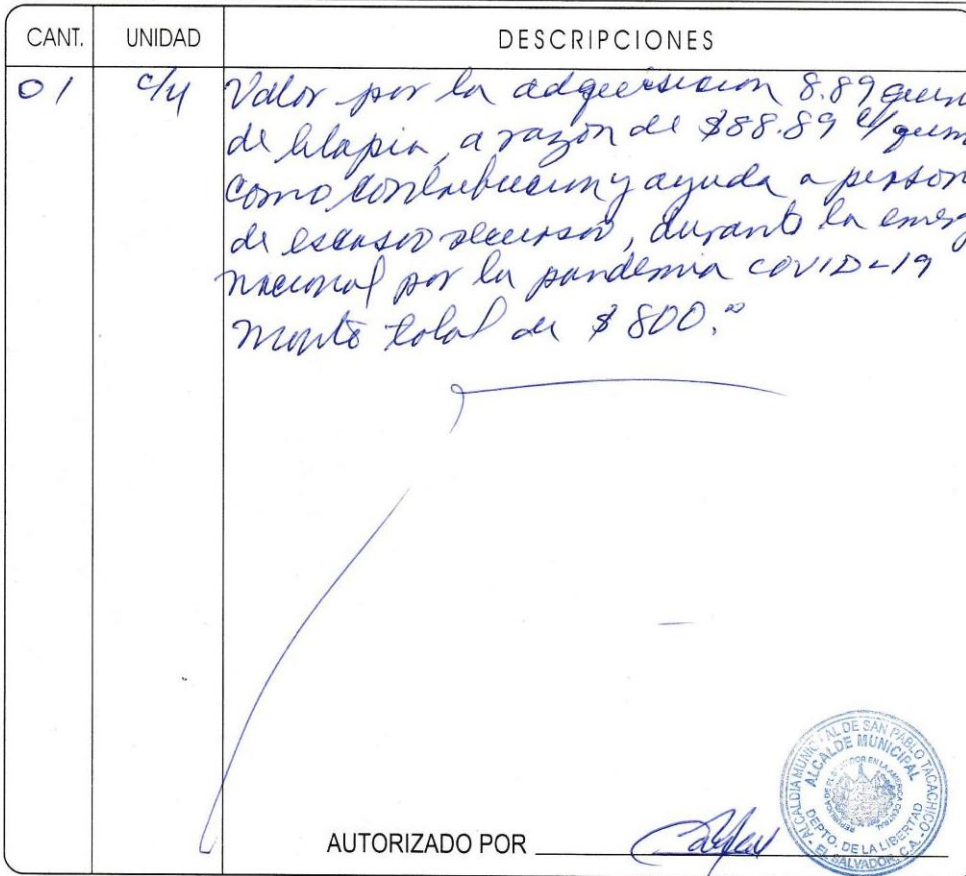 CANT. UNIDAD DESCRIPCIONES
01 c/u Valor por la adquisicion 8.89 quin
de tilapia, a razón de $88.89 c/ quin
como contribucion y ayuda a person
de escasos recursos, durante la emerg
nacional por la pandemia COVID-19
Monto total de $800.ºº
AUTORIZADO POR
ALCALDIA MUNICIPAL DE SAN PABLO TACACHICO
ALCALDE MUNICIPAL
DEPTO. DE LA LIBERTAD
EL SALVADOR, C.A.